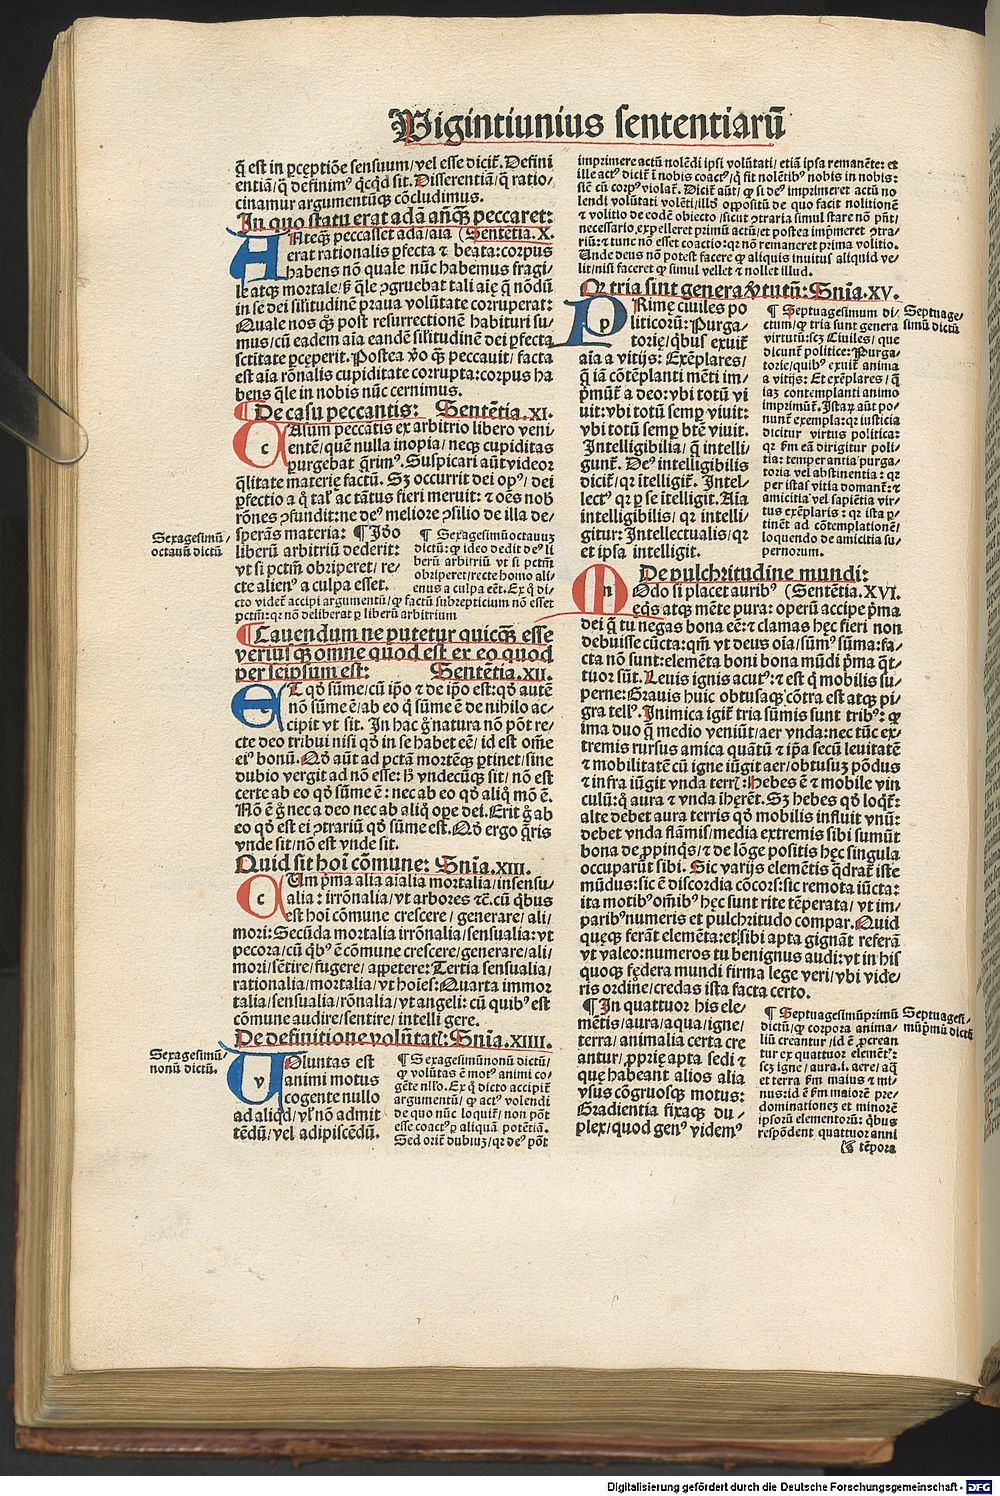 Vigintiunius sententiarū
q̄ est in ꝑceptiōe sensuum/vel esse dicit̄. Defini
entiā/q̄ definimꝰ qc̄qd sit. Disserentiā/q̄ ratio/
cinamur argumentūqꝫ cōcludimus.
In quo statu erat adā anteqꝫ peccaret:
ANteqꝫ peccasset ada/aīa (Sentētia. X.
erat rationalis ꝑfecta ⁊ beata: corpus
habens nō quale nūc habemus fragi/
le atqꝫ mortale/sꝫ q̄le ꝯgruebat tali aīe/ q̄ nōdū
in se dei silitudinē praua volūtate corruperat:
Quale nos qꝫ post resurrectionē habituri su/
mus/cū eadem aīa eandē silitudinē dei ꝑfecta
sctitate ꝑceperit. Postea v̄o qꝫ peccauit/ facta
est aīa rōnalis cupiditate corrupta: corpus ha
bens q̄le in nobis nūc cernimus.
¶ De casu peccantis: Sentētia. XI.
CAsum peccātis ex arbitrio libero veni
entē/quē nulla inopia/ neqꝫ cupiditas
purgebat q̄rimꝰ. Suspicari aūt videor
q̄litate materie factū. Sꝫ occurrit dei opꝰ/ dei
ꝑfectio a q̄ tal̓ ac tātus fieri meruit: ⁊ oēs nob̓
rōnes ꝯfundit: ne deꝰ meliore ꝯsilio de illa de/
sperās materia: ¶ Iđo
liberū arbitriū dederit:
vt si pctm̄ obriperet/ re/
cte alienꝰ a culpa esset.
Sexagesimū/
octauū dictū
¶ Sexagesimū octauuꝫ
dictū: ꝙ ideo dedit deꝰ li
berū arbitriū vt si pctm̄
obriperet/recte homo ali/
enus a culpa eēt. Ex q̄ di/
cto videt̄ accipi argumentū/ꝙ factū subrepticium nō esset
pctm̄: qꝛ nō deliberat̄ ꝑ liberū arbitrium
¶ Cauendum ne putetur quicqꝫ esse
verius qꝫ omne quod est ex eo quod
per seipsum est: Sentētia. XII.
ET qđ sūme/cū ip̄o ⁊ de ip̄o est: qđ autē
nō sūme ē/ab eo q̄ sūme ē de nihilo ac/
cipit vt sit. In hac g̊ natura nō pōt re/
cte deo tribui nisi qđ in se habet eē/ id est om̄e
eiꝰ bonū. Qđ aūt ad pctā mortēqꝫ ꝑtinet/sine
dubio vergit ad nō esse: hꝰ vndecūqꝫ sit/ nō est
certe ab eo qđ sūme ē: nec ab eo qđ aliq̄ mō ē.
Nō ē g̊ nec a deo nec ab aliq̄ ope dei. Erit g̊ ab
eo qđ est ei ꝯtrariū qđ sūme est. Qđ ergo q̄ris
vnde sit/nō est vnde sit.
Quid sit hoī cōmune: Snīa. XIII.
CUm p̄ma alia aīalia mortalia/insensu/
alia: irrōnalia/vt arbores ⁊c̄. cū qbus
est hoī cōmune crescere/ generare/ ali/
mori: Secūda mortalia irrōnalia/sensualia: vt
pecora/cū qbꝰ ē cōmune crescere/generare/ali/
mori/sētire/fugere/appetere: Tertia sensualia/
rationalia/mortalia/vt hoīes: Quarta immor
talia/sensualia/rōnalia/vt angeli: cū quibꝰ est
cōmune audire/sentire/ intelli gere.
De definitione volūtat̄: Snīa. XIIII.
VOluntas est
animi motus
cogente nullo
ad aliqd/vl̓ nō admit
tēdū/vel adipiscēdū.
Sexagesimū/
nonū dictū.
¶ Sexagesimūnonū dictū/
ꝙ volūtas ē motꝰ animi co/
gēte nllo. Ex q̄ dicto accipit̄
argumentū/ ꝙ actꝰ volendi
de quo nūc loquit̄/ non pōt
esse coactꝰ ꝑ aliquā potētiā.
Sed orit̄ dubiuꝫ/qꝛ deꝰ pōt
imprimere actū nolēdi ipsi volūtati/ etiā ipsa remanēte: et
ille actꝰ dicit̄ ī nobis coactꝰ/q̄ fit nolētibꝰ nobis in nobis:
sic̄ cū corpꝰ violat̄. Dicit̄ aūt/ ꝙ si deꝰ imprimeret actū no
lendi volūtati volēti/illo oppositū de quo facit nolitionē
⁊ volitio de eodē obiecto /sicut ꝯtraria simul stare nō pn̄t/
necessario expelleret primū actū/et postea imp̄meret ꝯtra/
riū: ⁊ tunc nō esset coactio: qꝛ nō remaneret prima volitio.
Unde deus nō potest facere ꝙ aliquis inuitus aliquid ve/
lit/nisi faceret ꝙ simul vellet ⁊ nollet illud.
Qꝛ tria sint genera v̄tutū: Snīa. XV.
PRime ciuiles po
liticorū: Purga/
torie/qbus exuit̄
aīa a vitijs: Exēplares/
q̄ iā cōtēplanti mēti im/
p̄mūt̄ a deo: vbi totū vi
uit: vbi totū semꝑ viuit:
vbi totū semꝑ bn̄ viuit.
Intelligibilia/ q̄ intelli
gunt̄. Deꝰ intelligibilis
dicit̄/ qꝛ ītelligit̄. Intel/
lectꝰ qꝛ ꝑ se ītelligit. Aīa
intelligibilis/ qꝛ intelli/
gitur: Intellectualis/qꝛ
et ipsa intelligit.
¶ Septuagesimum di/
ctum/ꝙ tria sunt genera
virtutū: scꝫ Ciuiles/ que
dicunt̄ politice: Purga/
torie/quibꝰ exuit̄ anima
a vitijs: Et exēplares/ q̄
iaꝫ contemplanti animo
imprimunt̄. Istaꝝ aūt po/
nunt̄ exempla: qꝛ iusticia
dicitur virtus politica:
qꝛ fm̄ eā dirigitur poli/
tia: temperantia purga/
toria vel abstinentia: qꝛ
per istas vitia domant̄: ⁊
amicitia vel sapiētia vir/
tus exēplaris: qꝛ ista ꝑ/
tinēt ad cōtemplationē/
loquendo de amicitia su/
pernorum.
Septuage/
simū dictū
De pulchritudine mundi:
MOdo si placet auribꝰ (Sentētia. XVI.
eq̄s atqꝫ mēte pura: operū accipe p̄ma
dei q̄ tu negas bona eē: ⁊ clamas hec fieri non
debuisse cūcta: qm̄ vt deus oīa/sūmꝰ sūma: fa/
cta nō sunt: elemēta boni bona mūdi p̄ma q̄t/
tuor sūt. Leuis ignis acutꝰ: ⁊ est q̄ mobilis su/
perne: Grauis huic obtusaqꝫ cōtra est atqꝫ pi/
gra tellꝰ. Inimica igit̄ tria sūmis sunt tribꝰ: ꝙ
ima duo q̄ medio veniūt/aer vnda: nec tūc ex/
tremis rursus amica quātū ⁊ ip̄a secū leuitatē
⁊ mobilitatē cū igne iūgit aer/obtusuꝫ pōdus
⁊ infra iūgit vnda terr̄: Hebes ē ⁊ mobile vin
culū: q̄ aura ⁊ vnda īherēt. Sꝫ hebes qđ loqt̄:
alte debet aura terris qđ mobilis influit vnū:
debet vnda flāmis/media extremis sibi sumūt
bona de ꝓpinqs/ ⁊ de lōge positis hec singula
occuparūt sibi. Sic varijs elemētis q̄drat̄ iste
mūdus: sic ē discordia cōcors: sic remota iūcta:
ita motibꝰ om̄ibꝰ hec sunt rite tēperata/ vt im/
paribꝰ numeris et pulchritudo compar. Quid
queqꝫ ferāt elemēta: et sibi apta gignāt referā
vt valeo: numeros tu benignus audi: vt in his
quoqꝫ federa mundi firma lege veri/ vbi vide/
ris ordine/credas ista facta certo.
¶ In quattuor his ele/
mētis/aura/aqua/igne/
terra/ animalia certa cre
antur/ ꝓprie apta sedi ⁊
que habeant alios alia
vsus cōgruosqꝫ motus:
Gradientia fixaqꝫ du/
plex/quod genꝰ videmꝰ
¶ Septuagesimūprimū
dictū/ꝙ corpora anima/
liū creantur/id ē ꝓcrean
tur ex quattuor elemēt̄:
scꝫ igne/ aura .i. aere/ aq̄
et terra fm̄ maius ⁊ mi/
nus: id ē fm̄ maiorē pre/
dominationeꝫ et minorē
ipsorū elementorū: qbus
respōdent quattuor anni
tēpora
Septuagesi/
mūp̄mū dictū
Digitalisierung gefördert durch die Deutsche Forschungsgemeinschaft - DFG